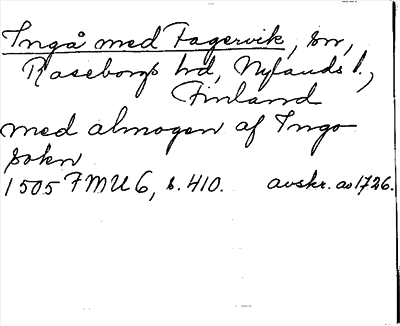 Ingå med Fagervik, sn,
Raseborgs hd, Nylands l.,
Finland
med almogen af Ingo
sokn
1505 FMU 6, s. 410. avskr. ao 1726.